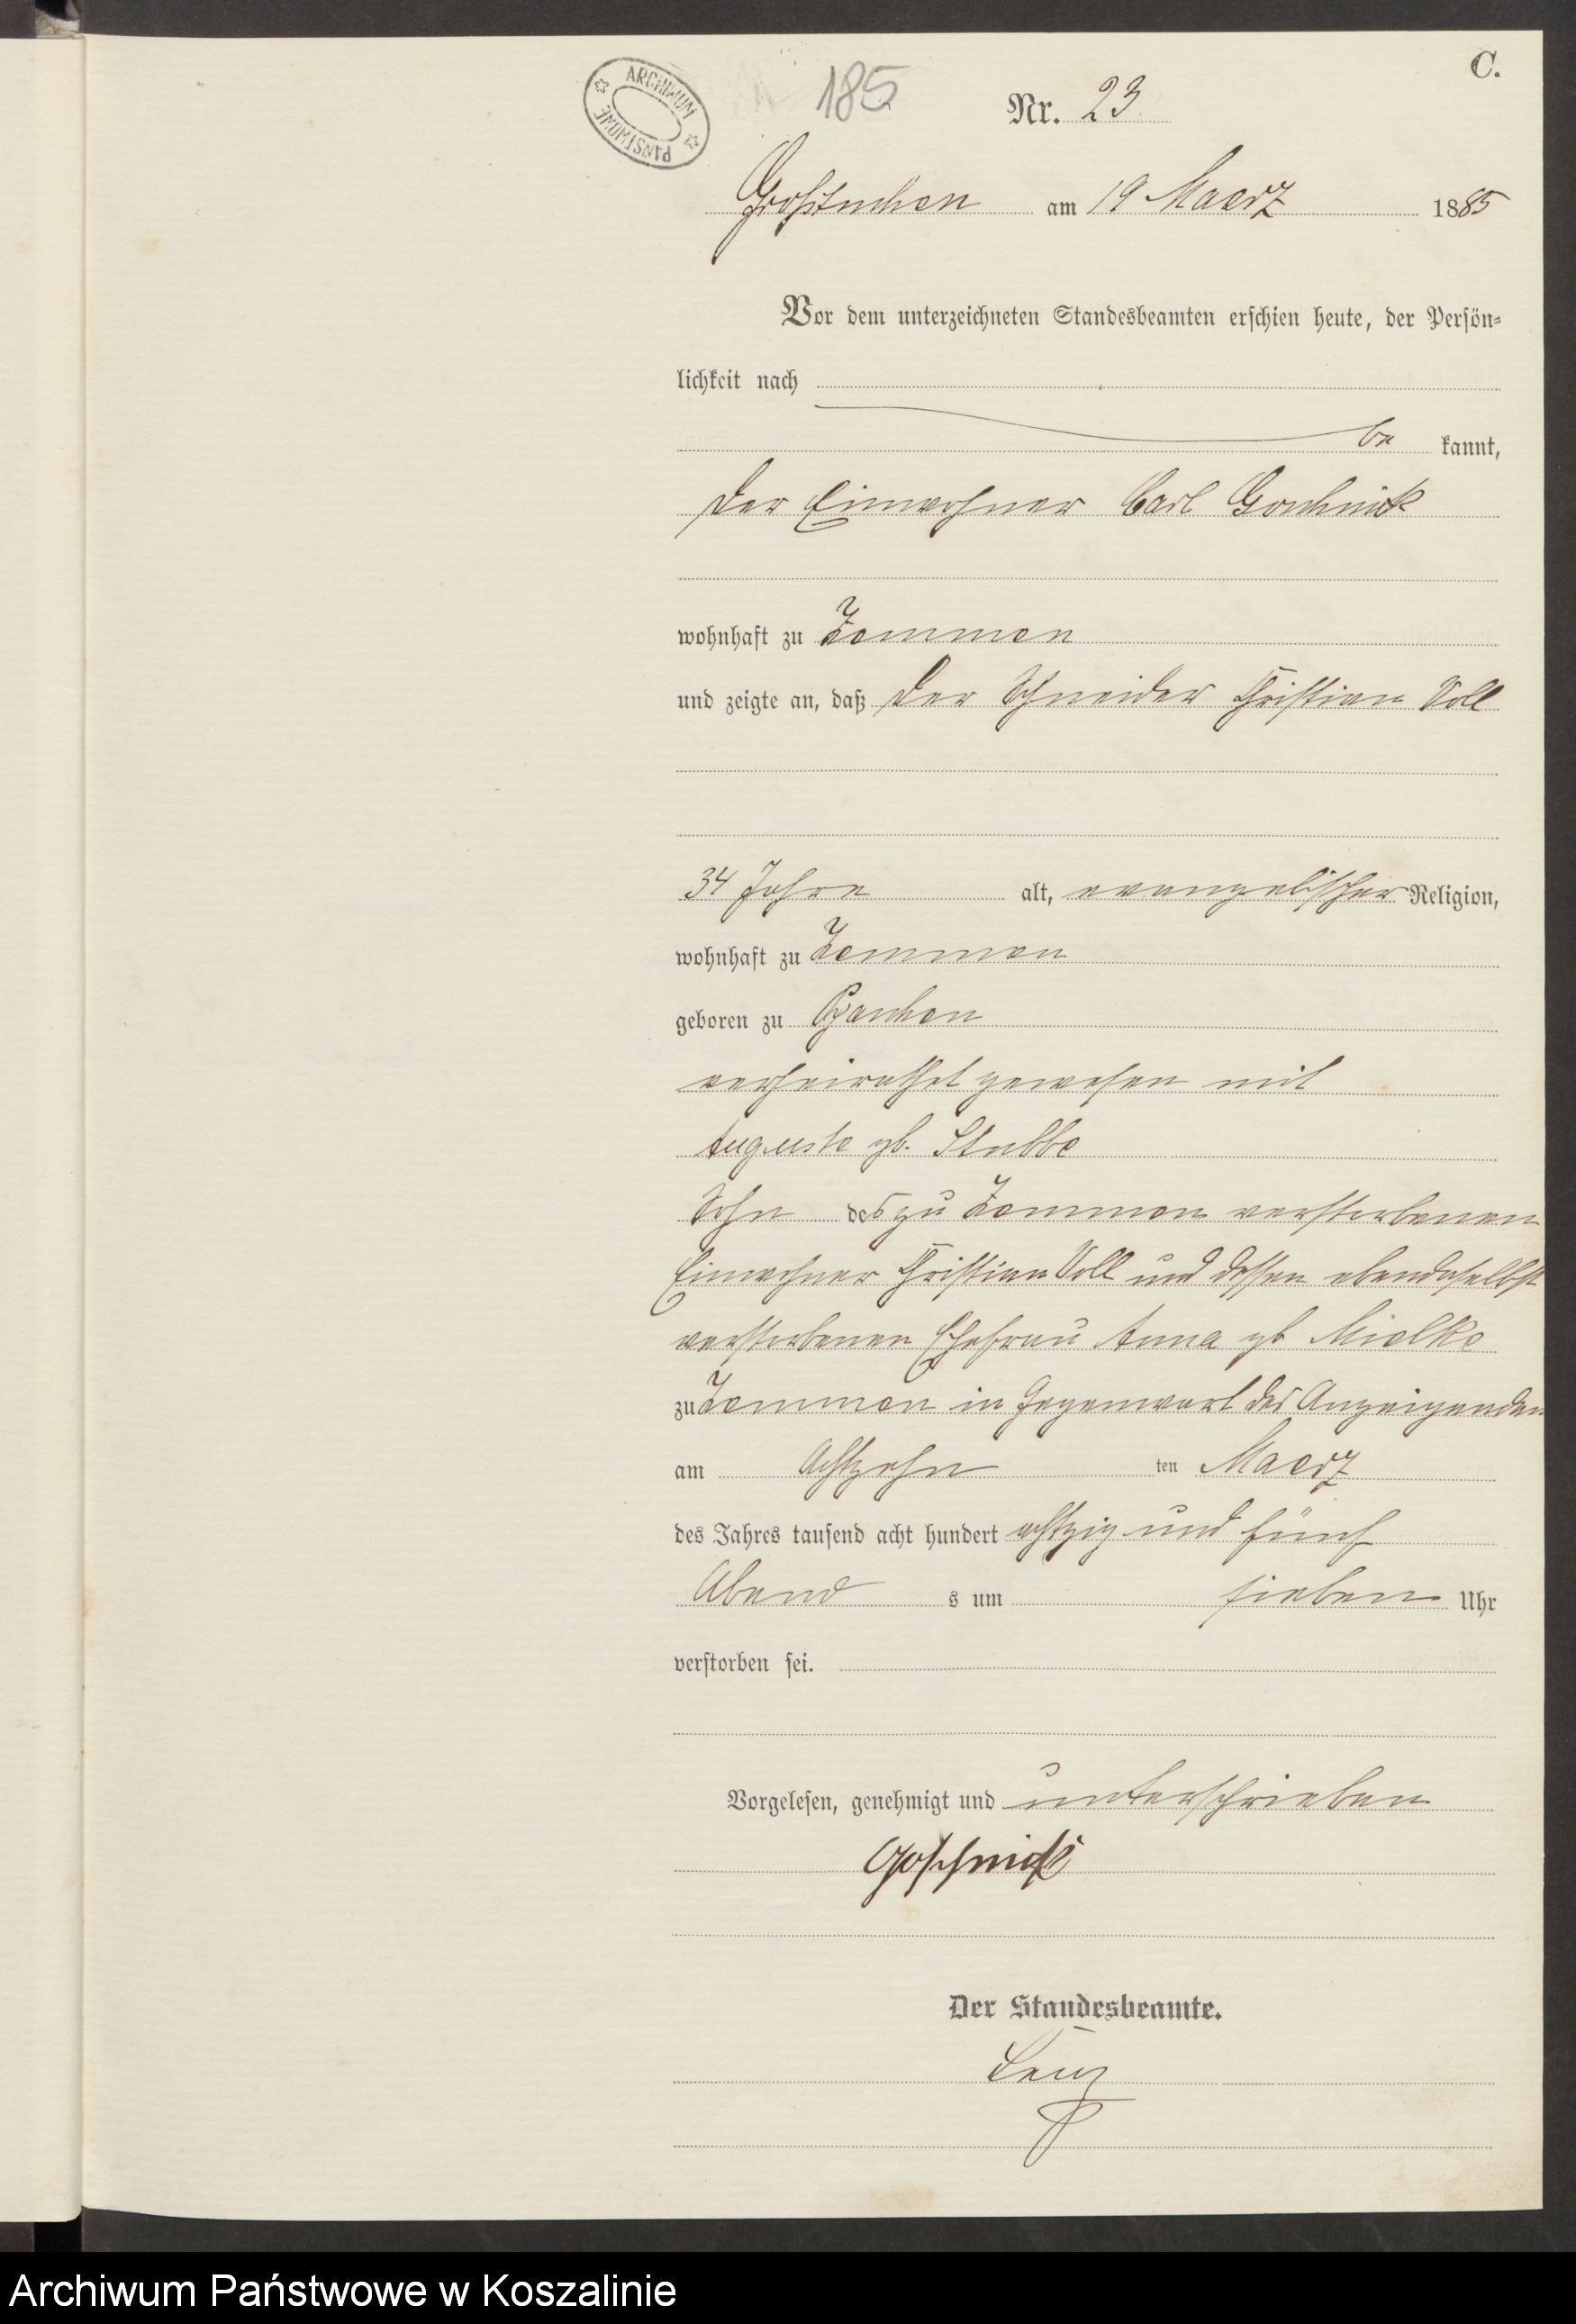 C.
ARCHIWUM PAŃSTWOWE
185
Nr. 23
Großtuchen am 19 Maerz 1885
Vor dem unterzeichneten Standesbeamten erschien heute, der Persön-
lichkeit nach
be kannt,
der Einwohner Carl
wohnhaft zu Zemmen
und zeigte an, daß der Schneider Christian Voll
34 Jahre alt, evangelischer Religion,
wohnhaft zu Zemmen
geboren zu
verheirathet gewesen mit
Auguste gb. Stubbe
Sohn des zu Zemmen verstorbenen
Einwohner Christian Voll und dessen ebendaselbst
verstorbenen Ehefrau Anna gb Mielke
zu Zemmen in Gegenwart des Anzeigenden
am Achtzehn ten Maerz
des Jahres tausend acht hundert achtzig und fünf
Abend s um sieben Uhr
verstorben sei.
Vorgelesen, genehmigt und unterschrieben
Der Standesbeamte.
Archiwum Państwowe w Koszalinie